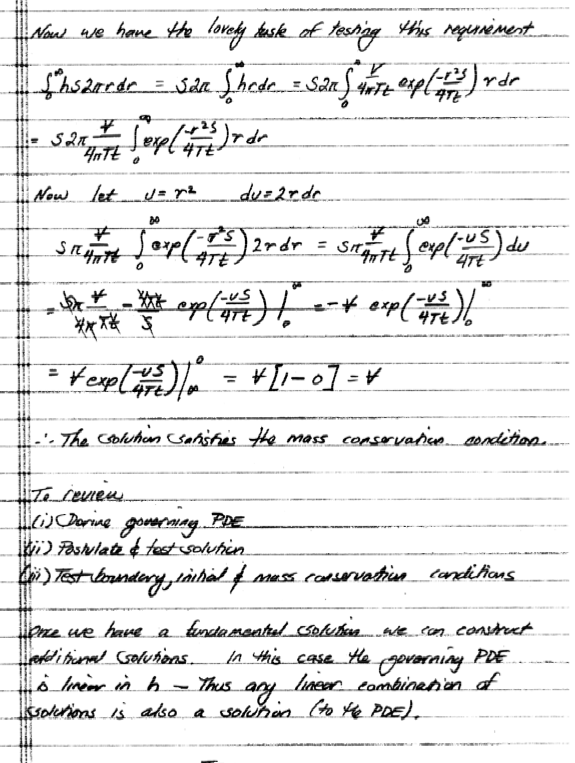 Now we have the lovely task of testing this requirement
∫₀^∞ hS2πrdr = S2π ∫₀^∞ hrdr = S2π ∫₀^∞ V/4πTt exp(-r²S/4Tt) r dr
= S2π V/4πTt ∫₀^∞ exp(-r²S/4Tt) r dr
Now let U = r² du = 2r dr
Sπ V/4πTt ∫₀^∞ exp(-r²S/4Tt) 2r dr = Sπ V/4πTt ∫₀^∞ exp(-US/4Tt) du
= Sπ V/4πTt -4Tt/S exp(-US/4Tt) |₀^∞ = -V exp(-US/4Tt) |₀^∞
= V exp(-US/4Tt) |_∞^0 = V[1-0] = V
∴ The solution satisfies the mass conservation condition.
To review
(i) Derive governing PDE
(ii) Postulate & test solution
(iii) Test boundary, initial & mass conservation conditions
Once we have a fundamental solution we can construct
additional solutions. In this case the governing PDE
is linear in h – Thus any linear combination of
solutions is also a solution (to the PDE).